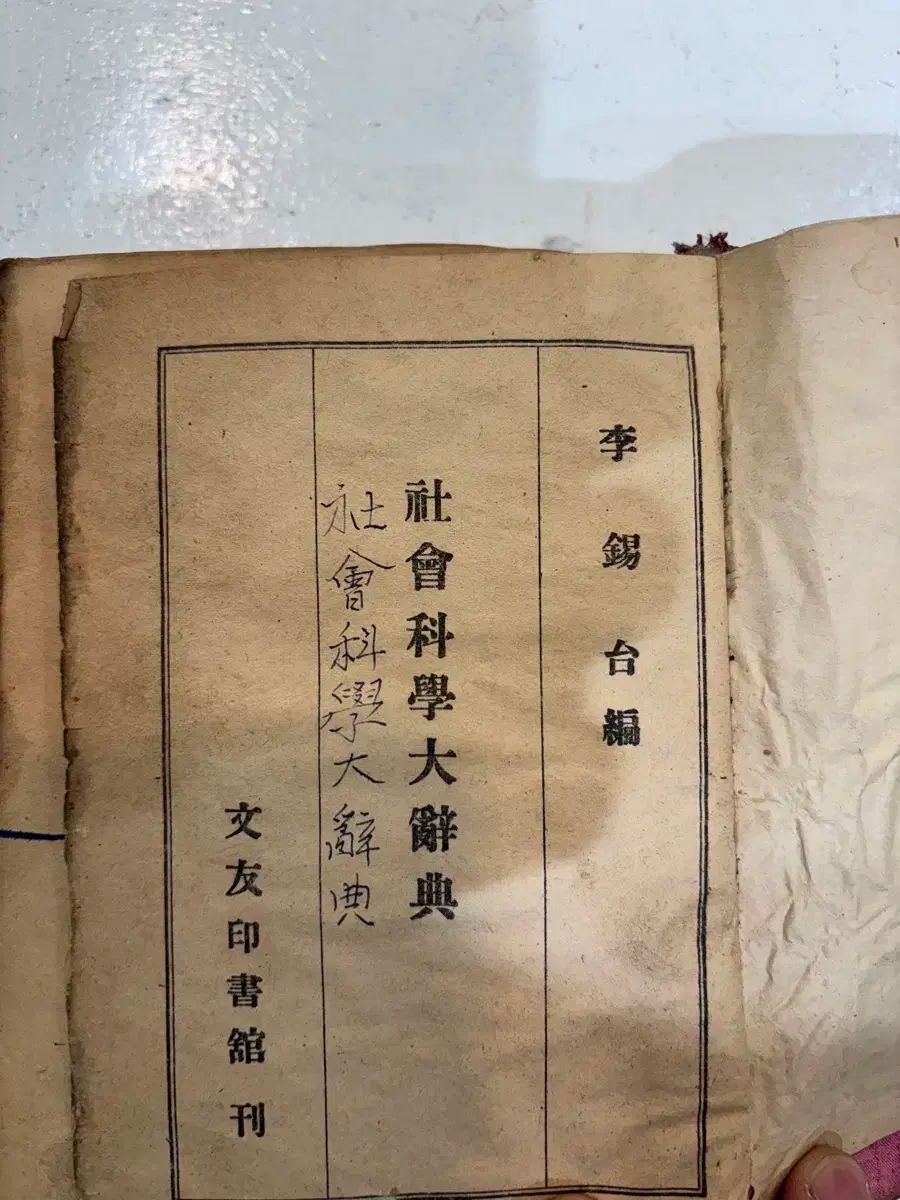 李錫台編
社會科學大辭典
社會科學大辭典
文友印書舘刊